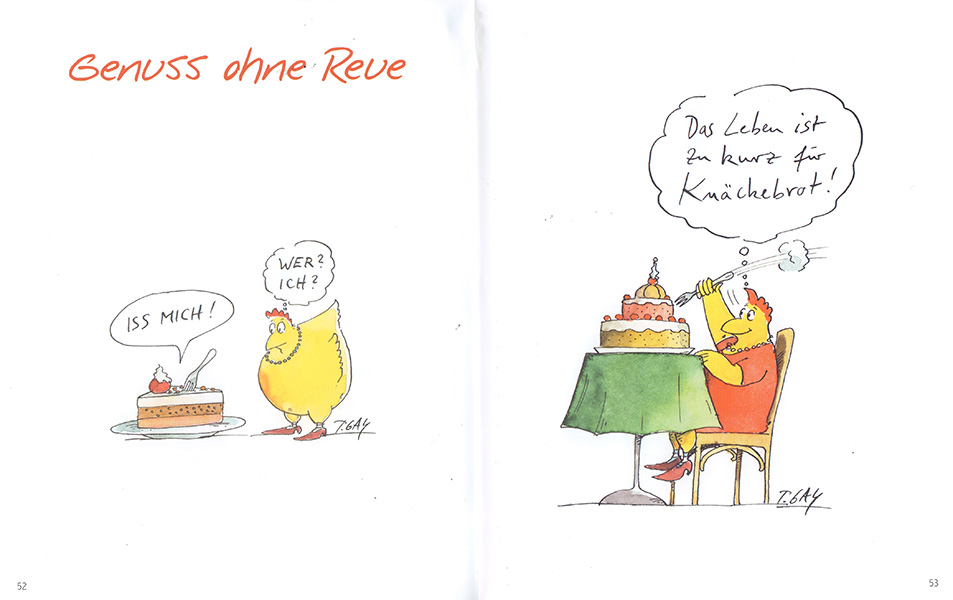 Genuss ohne Reue
WER?
ICH?
ISS MICH!
T. GAY
52
Das Leben ist
zu kurz für
Knäckebrot!
T. GAY
53